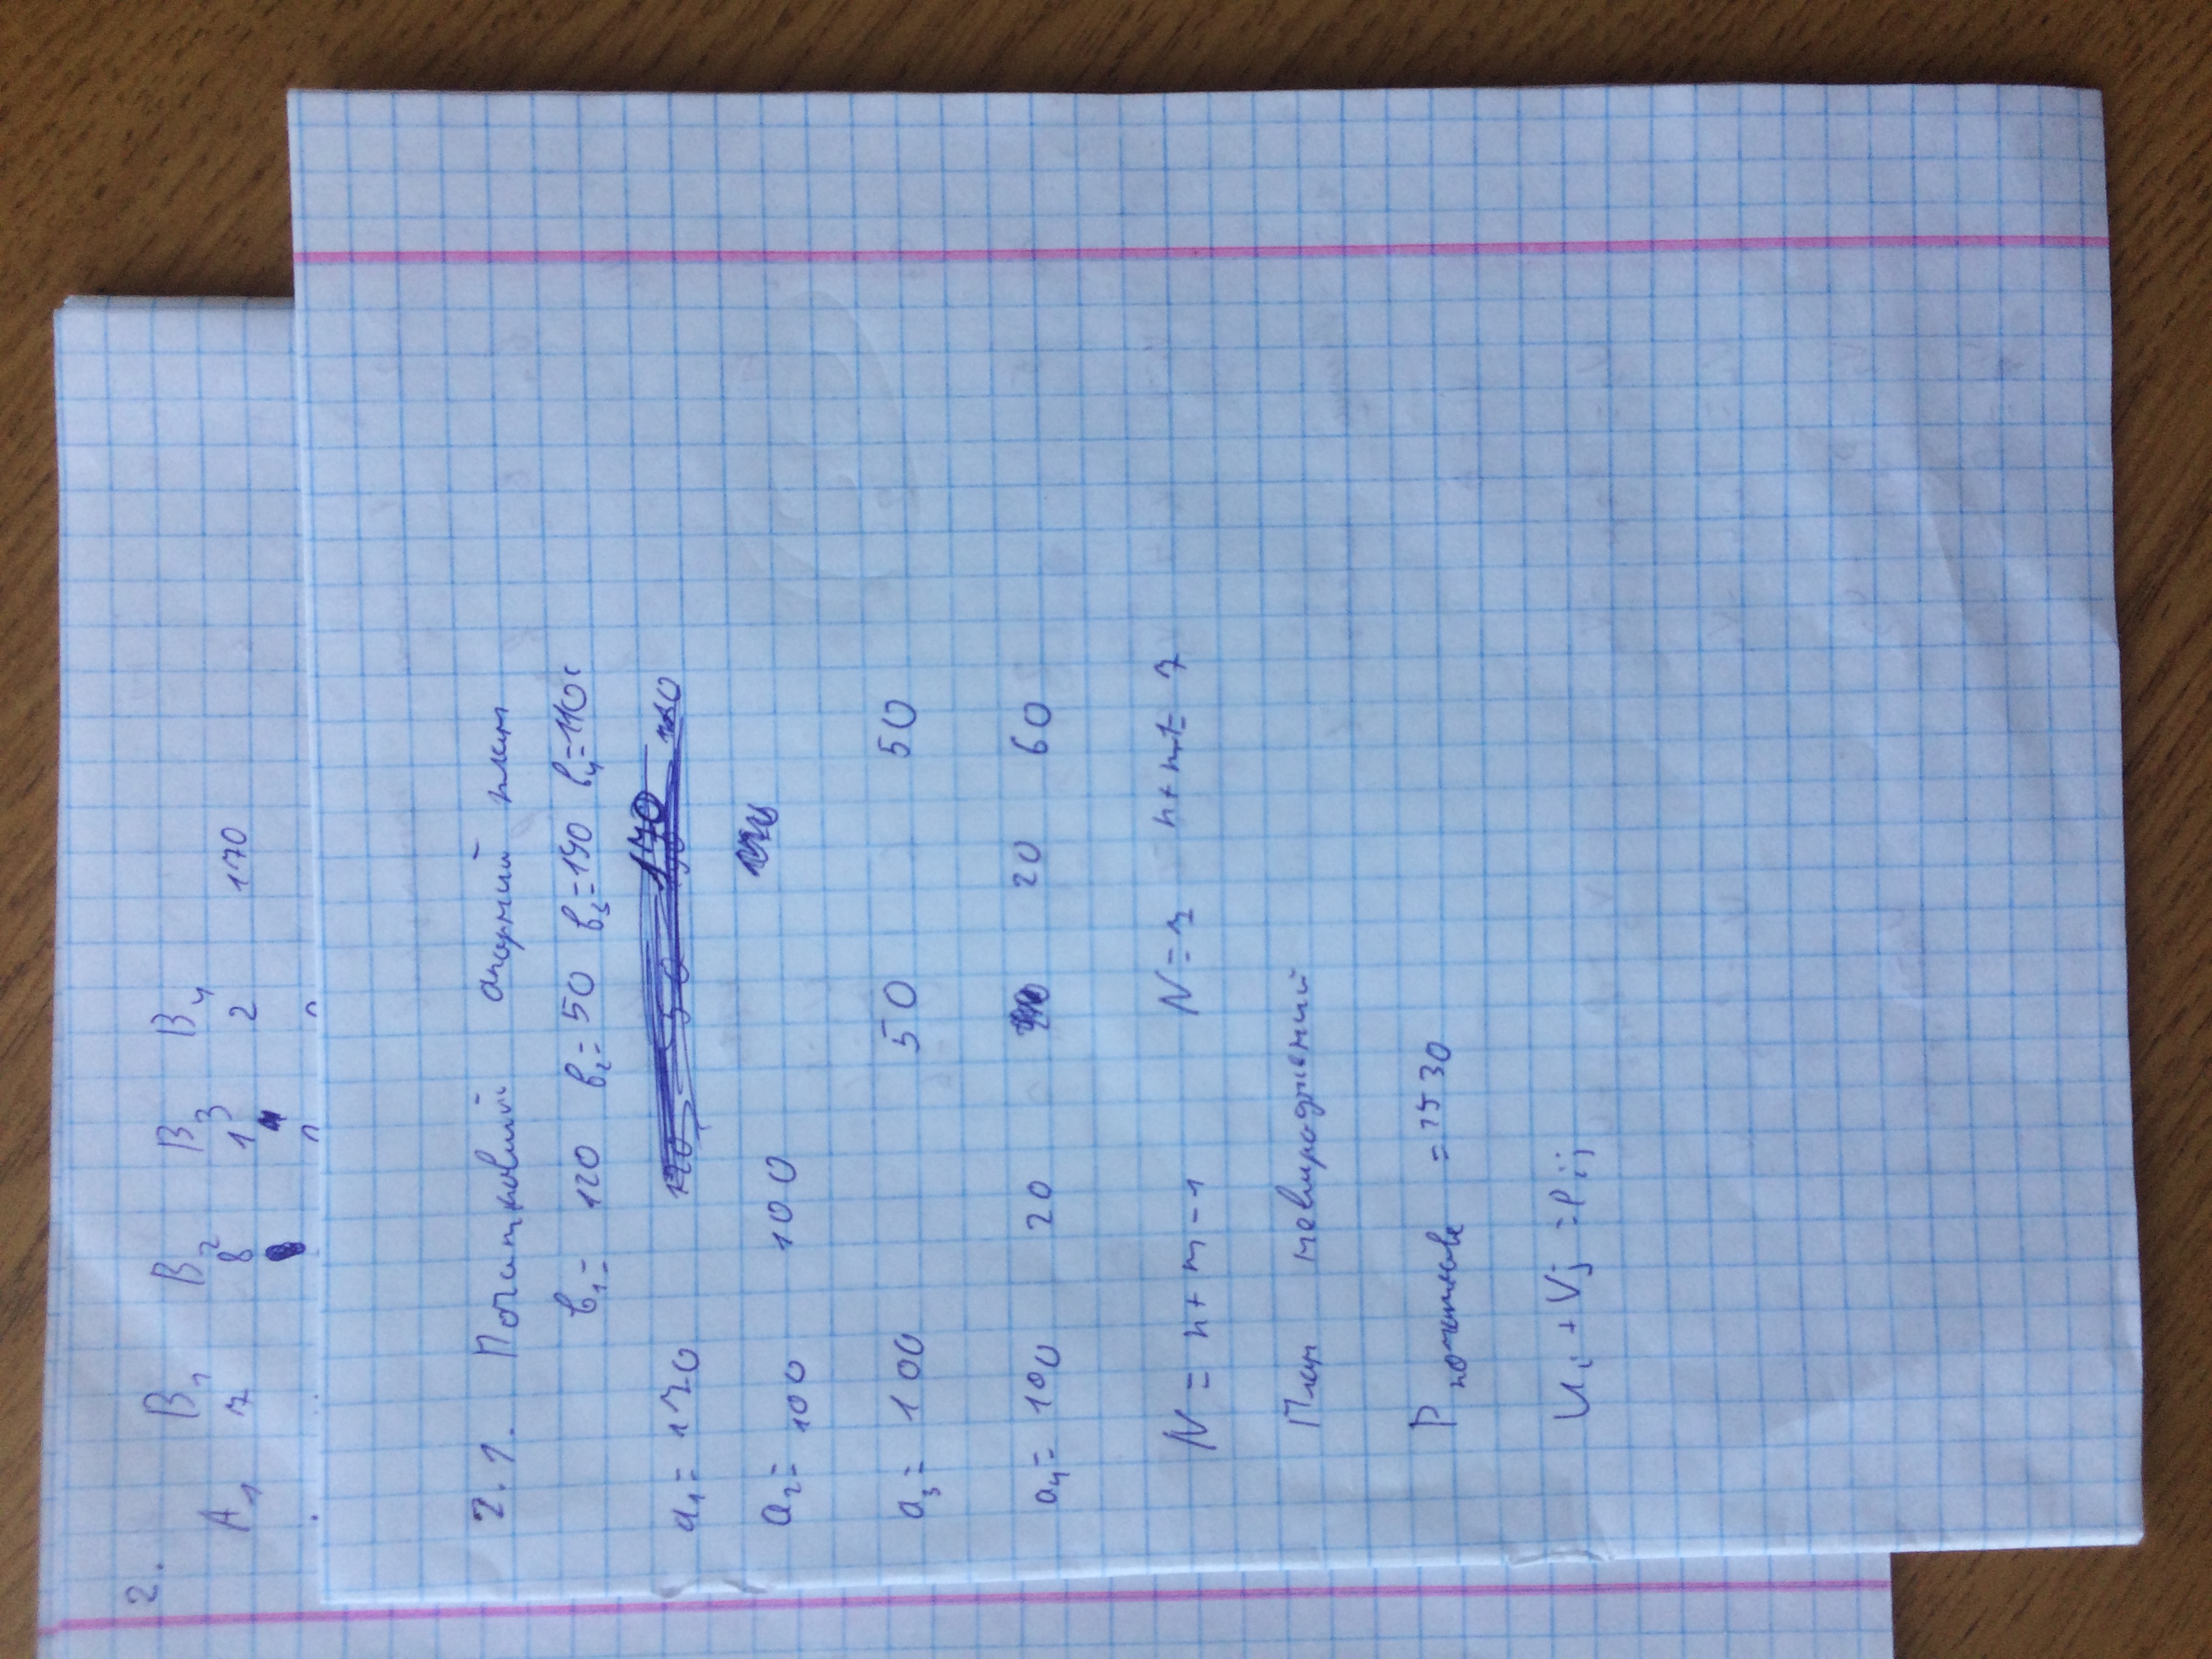 2.
B₁ B₂ B₃ B₄
A₁ 7 8 1 2 170
2.1. Початковий опорний план
b₁= 120 b₂= 50 b₃=190 b₄=110
a₁= 170 170
a₂= 100 100
a₃= 100 50 50
a₄= 100 20 20 60
N = n + m - 1 N = 7 n+m-1= 7
План невироджений
P початкове = 1530
Ui + Vj = Pij